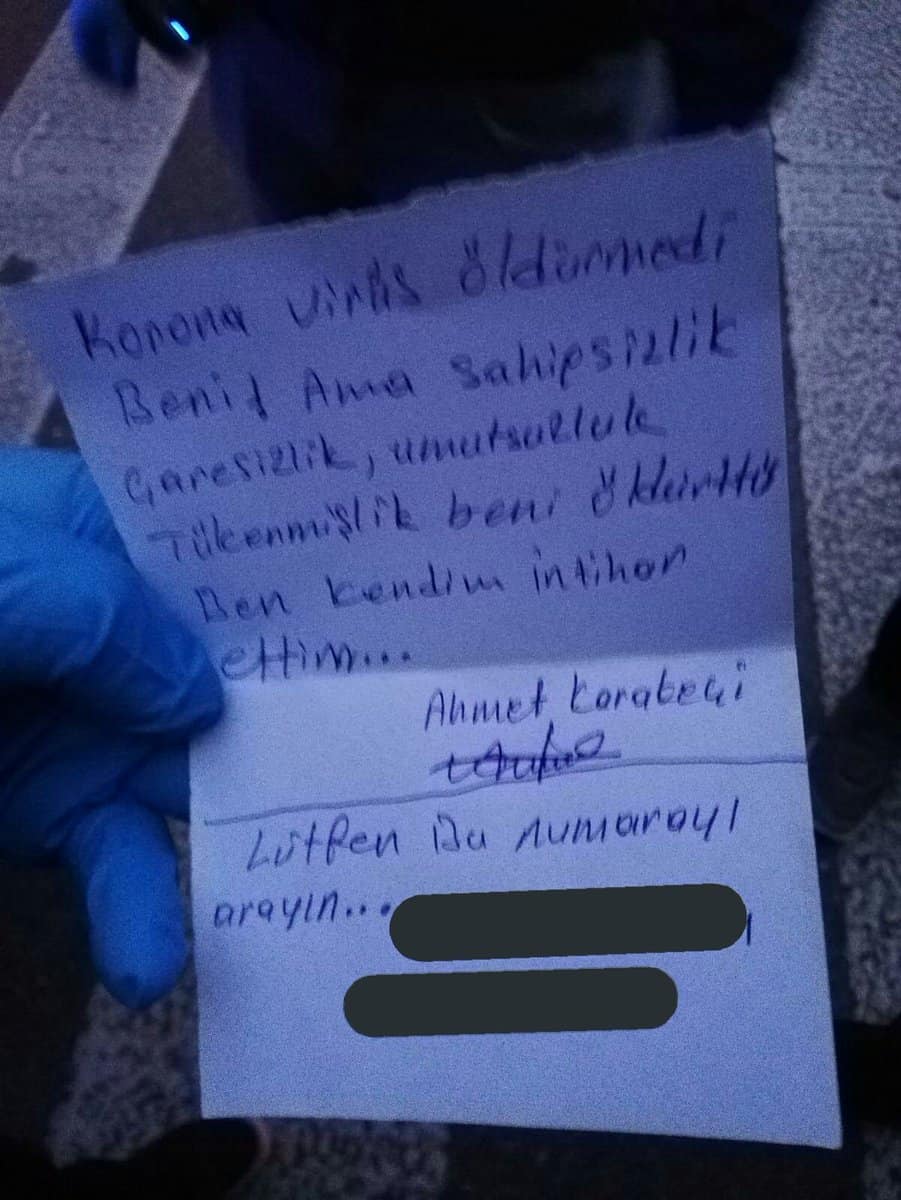 Korona virüs öldürmedi
Beni! Ama sahipsizlik
Çaresizlik, umutsuzluk
Tükenmişlik beni öldürttü
Ben kendim intihar
ettim...
Ahmet
Lütfen Bu numarayı
arayın...